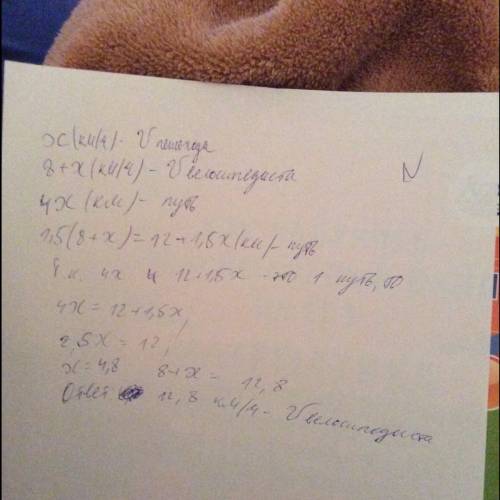 x (км/ч) - V пешехода
8+x (км/ч) - V велосипедиста
4x (км) - путь
1,5(8+x)=12+1,5x (км) - путь
Т.к. 4x и 12+1,5x - это 1 путь, то
4x=12+1,5x
2,5x=12
x=4,8 8+x= 12,8
Ответ 12,8 км/ч - V велосипедиста
N